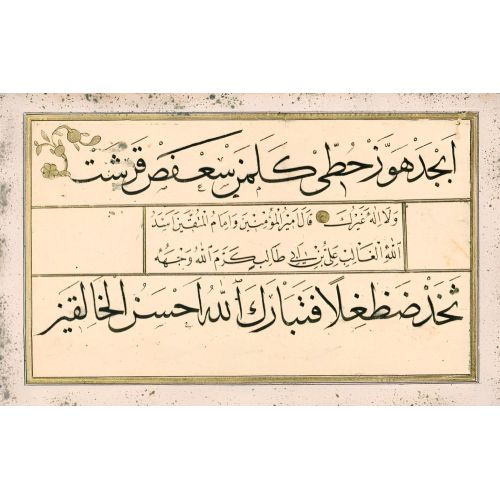 ابجد هوز حطي كلمن سعفص قرشت
ولا اله غيرك قال امير المؤمنين وامام المتقين اسد
الله الغالب علي بن ابي طالب كرم الله وجهه
ثخذ ضظغلا فتبارك الله احسن الخالقين